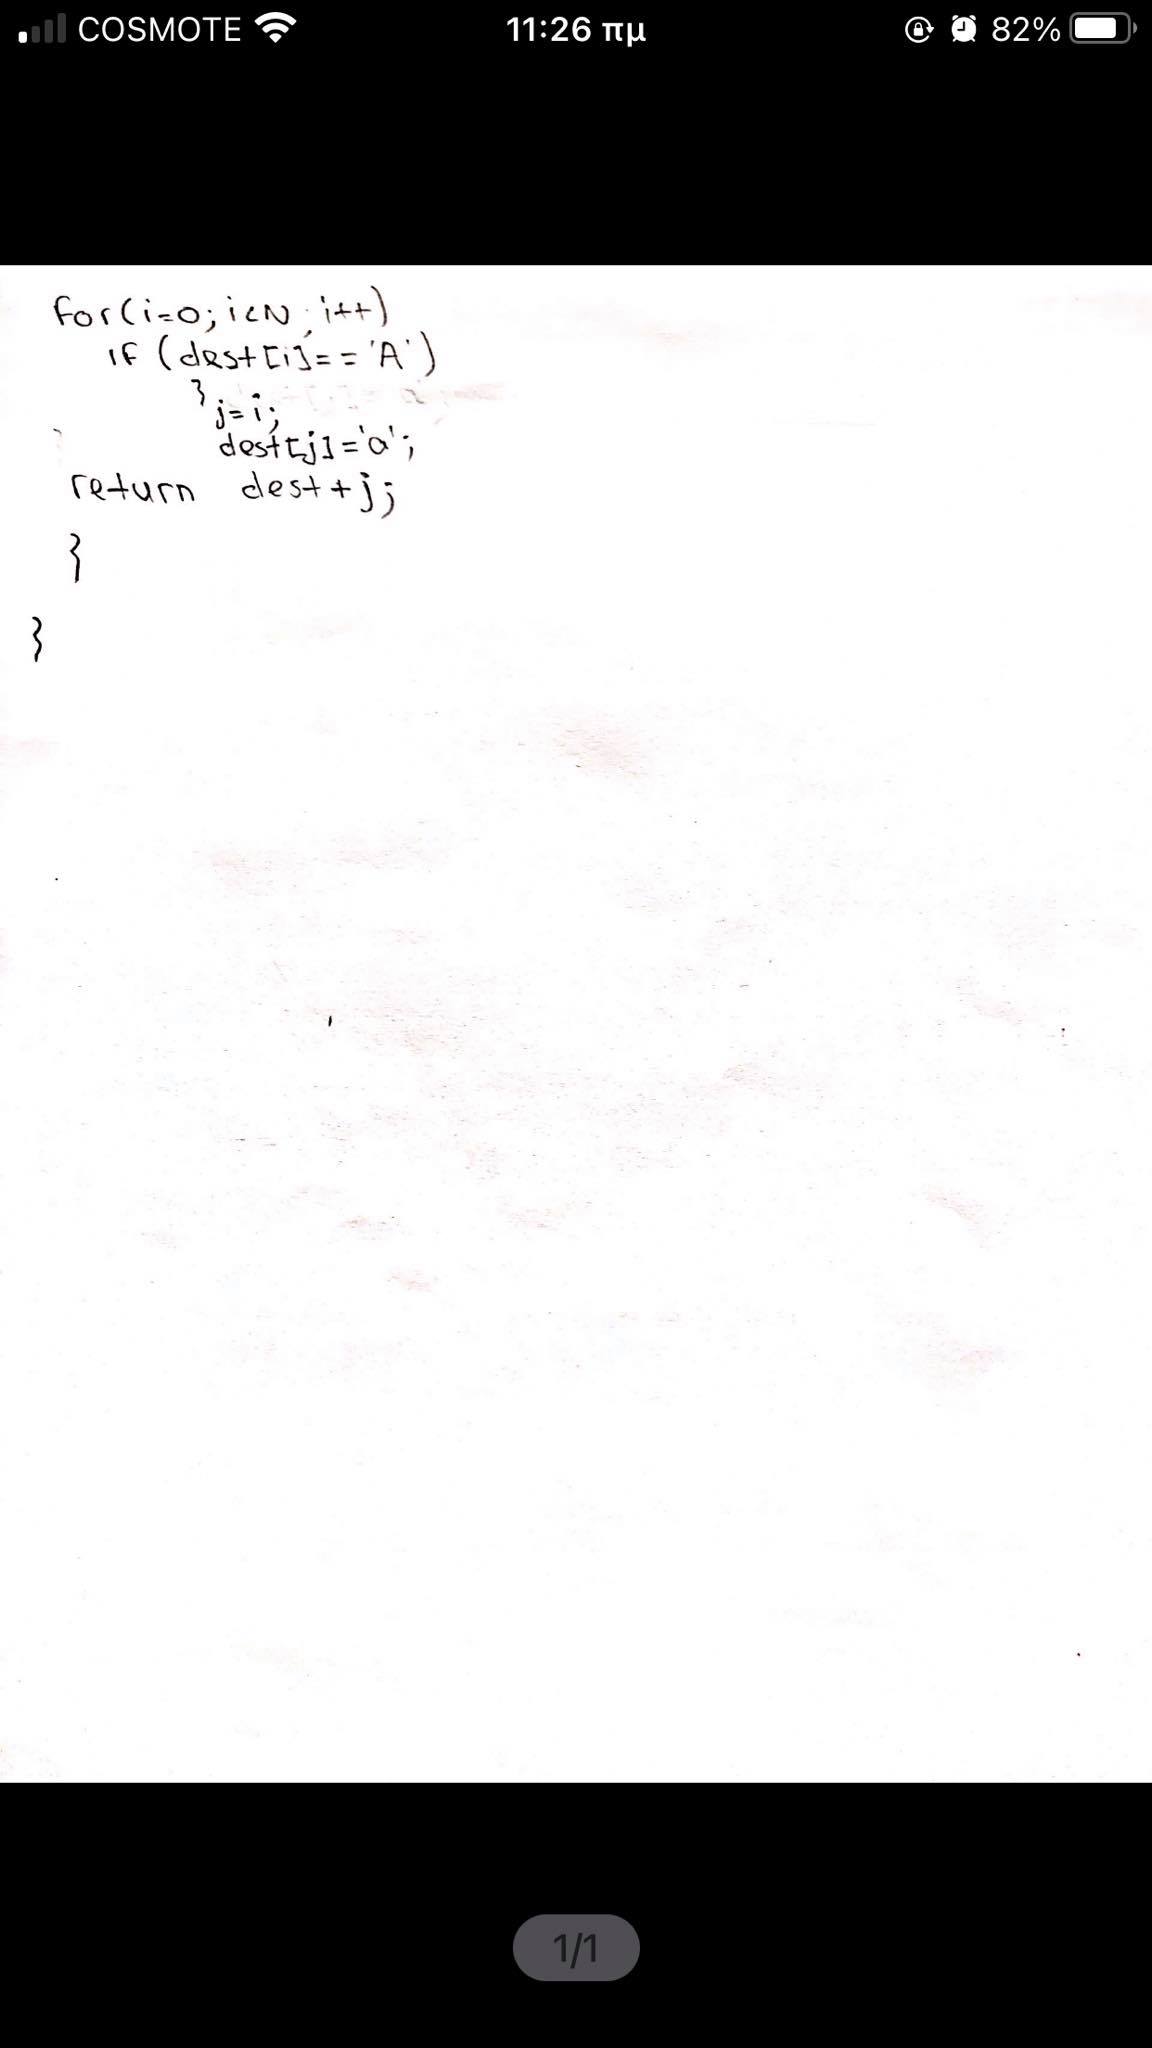 COSMOTE 11:26 πμ 82%
for(i=0;i<N;i++)
if (dest[i]=='A')
}
j=i;
dest[j]='a';
return dest+j;
}
}
1/1